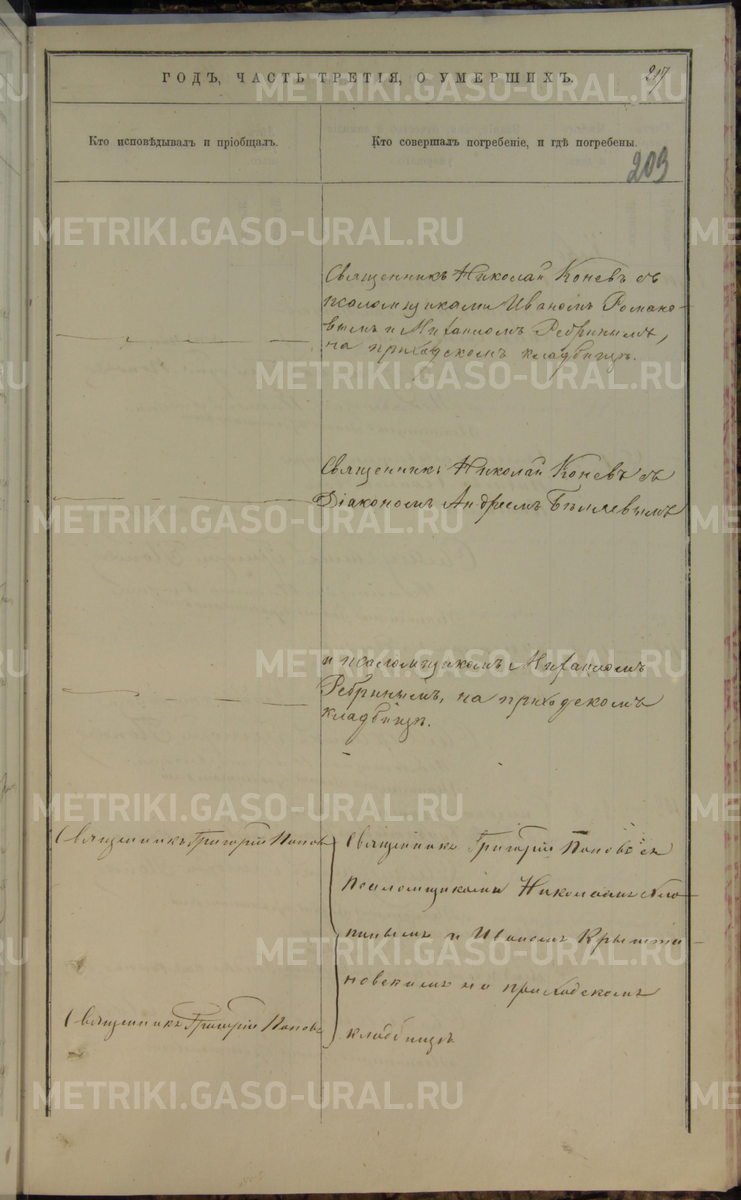 ГОДЪ, ЧАСТЬ ТРЕТІЯ, О УМЕРШИХЪ.
217
Кто исповѣдывалъ и пріобщалъ.
Кто совершалъ погребеніе, и гдѣ погребены.
203
Священникъ Николай Коневъ съ
псаломщиками Иваномъ Романо-
вымъ и Михаиломъ Ребринымъ,
на приходскомъ кладбищѣ.
Священникъ Николай Коневъ съ
Діакономъ Андреемъ
и псаломщикомъ Михаиломъ
Ребринымъ, на приходскомъ
кладбищѣ.
Священникъ Григорій Поповъ
Священникъ Григорій Поповъ съ
Псаломщиками Николаемъ
и Иваномъ Крыжта-
новскимъ на приходскомъ
кладбищѣ
Священникъ Григорій Поповъ
METRIKI.GASO-URAL.RU